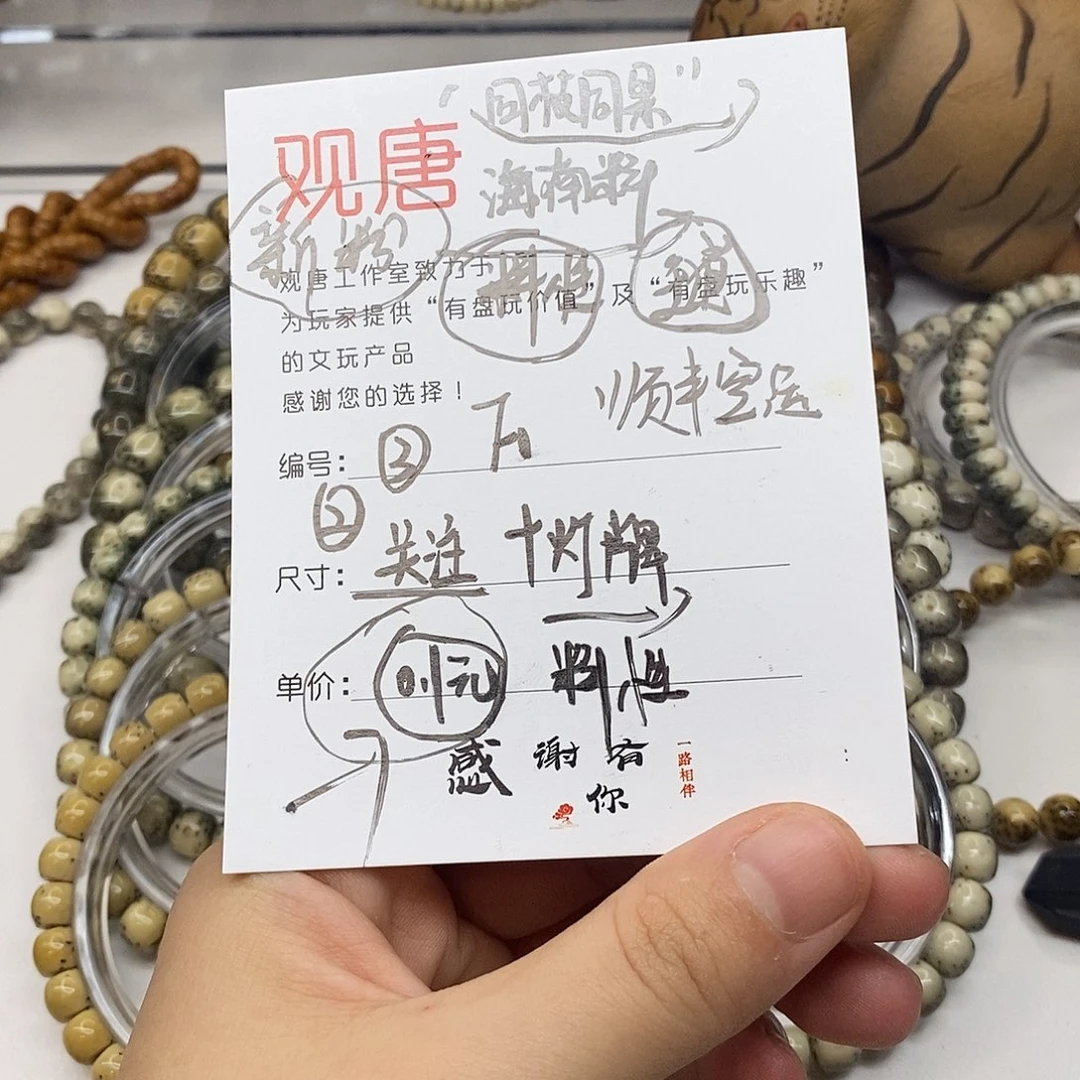 "同枝同果"
观唐
海南料
新粉
料性
观唐工作室致力于
为玩家提供“有盘玩价值”及“有盘玩乐趣”
的文玩产品
感谢您的选择！
顺丰空运
编号： ③
②
尺寸： 关注 +灯牌
单价： 料性
感谢有你
一路相伴